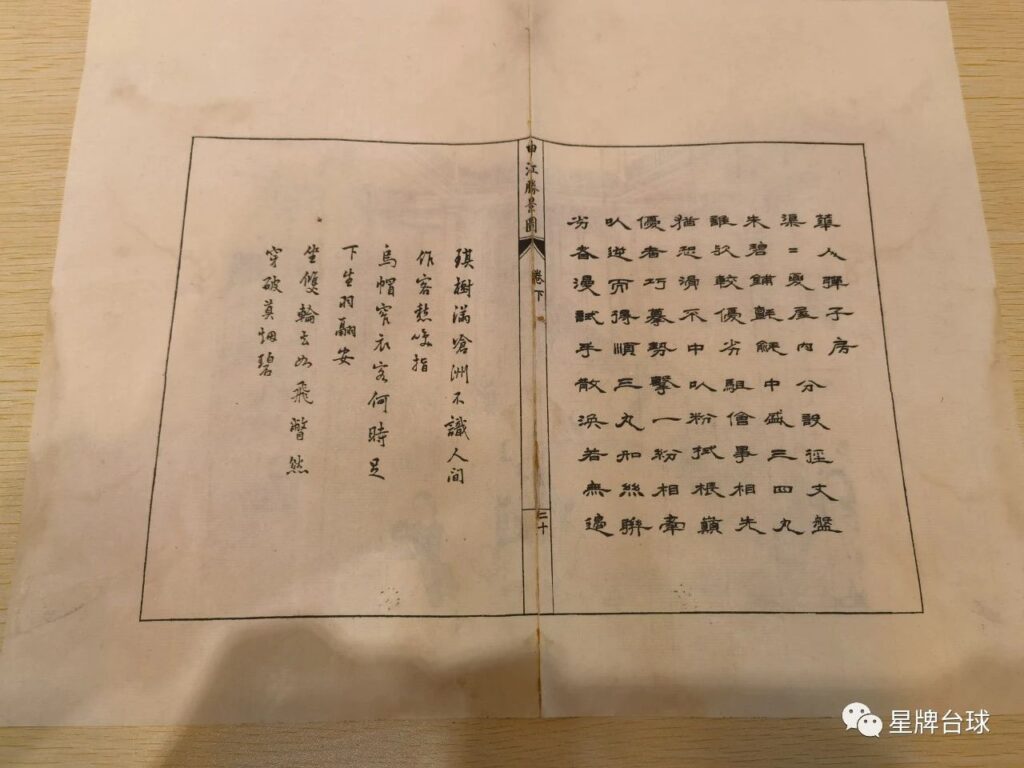 華人彈子房
渠〻夏屋內分設徑丈盤
朱碧鋪氈毹中盛三四丸
雖欲較優劣駔儈事相先
猶恐滑不中㕥粉拭棍巔
優者巧摹勢擊一紛相牽
㕥逆而得順三丸如絲聯
劣者漫試手散渙若無邊
申江勝景圖
卷下
三十
琪樹滿滄洲不識人间
作客愁吟指
烏帽窄衣客何時足
下生羽翮安
坐雙輪去如飛瞥然
穿破莫烟碧
星牌台球